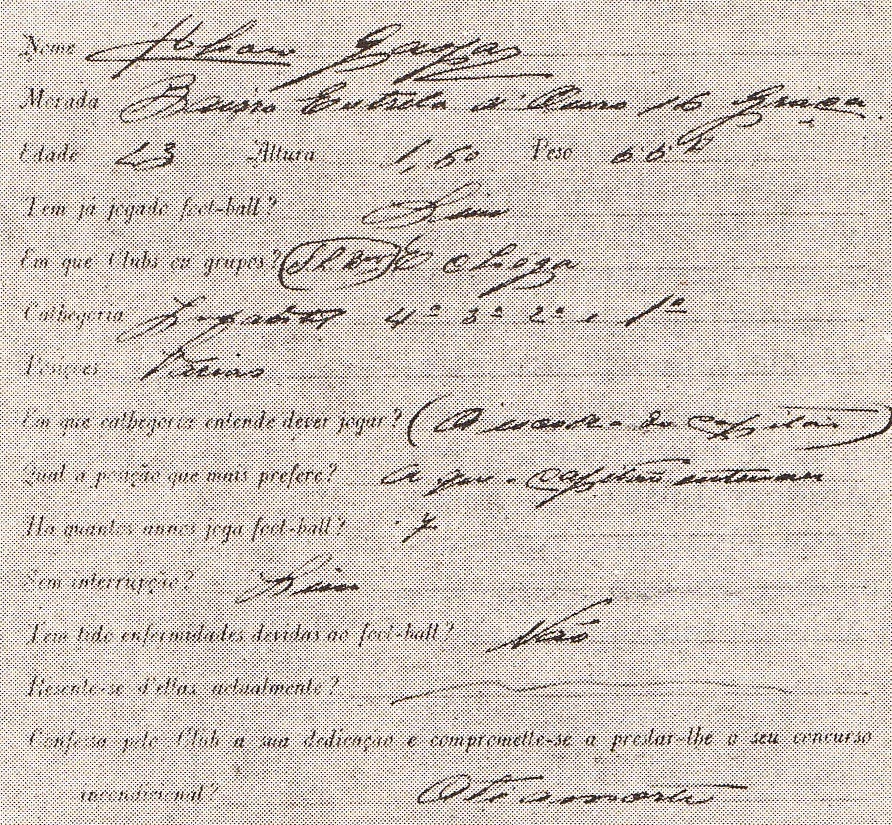 Nome Alvaro Gaspar
Morada Bairro Estrela d'Ouro 16 Graça.
Edade 23 Altura 1,60 Peso 66 K
Tem já jogado foot-ball? Sim
Em que Clubs ou grupos? chega
Cathegoria Infantil 4ª 3ª 2ª e 1ª
Posições Varias
Em que cathegoria entende dever jogar? (Á escolha do capitão)
Qual a posição que mais prefere? A que o capitão entender
Ha quantos annos joga foot-ball? 7
Sem interrupção? Sim
Tem tido enfermidades devidas ao foot-ball? Não
Resente-se d'ellas actualmente?
Confessa pelo Club a sua dedicação e compromette-se a prestar-lhe o seu concurso
incondicional? Até á morte